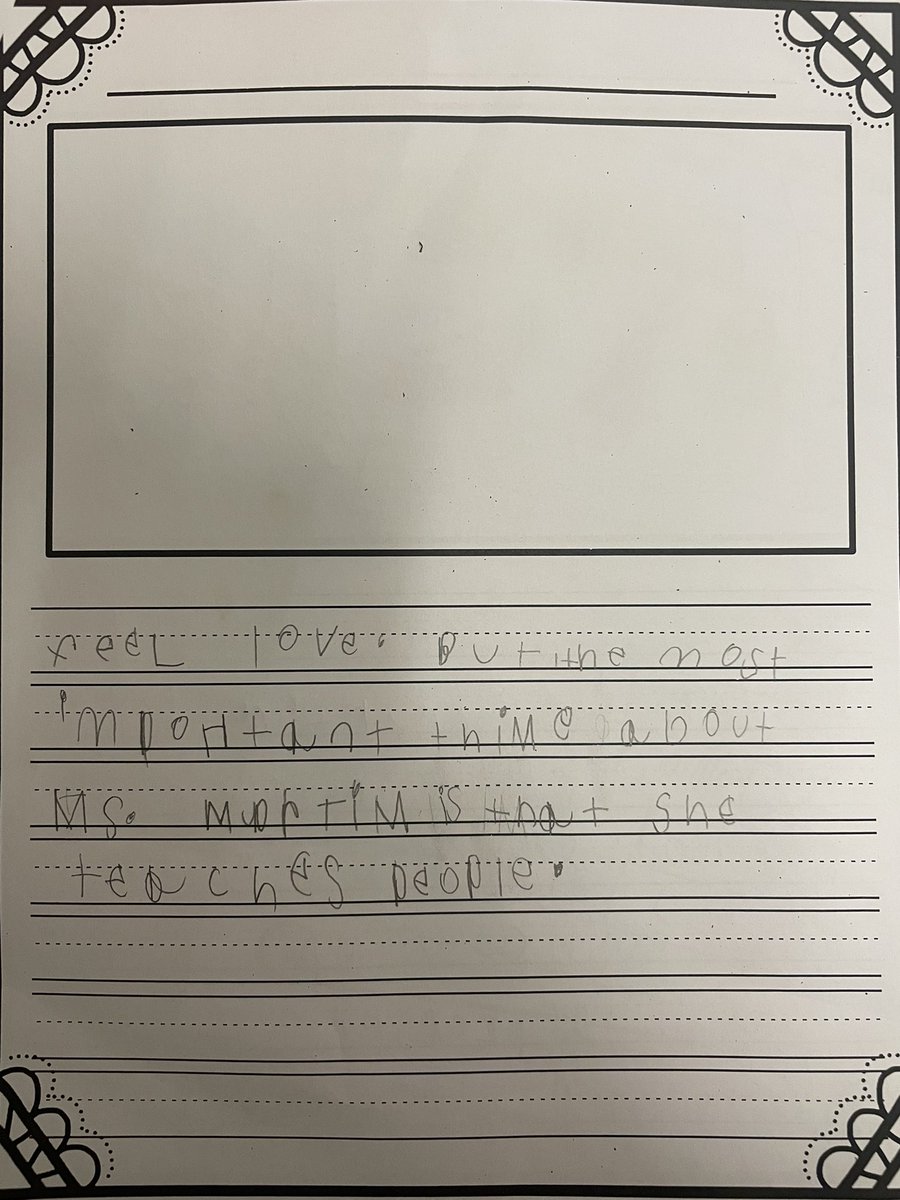 feel love. but the most
important thing about
Ms. is that she
teaches people.